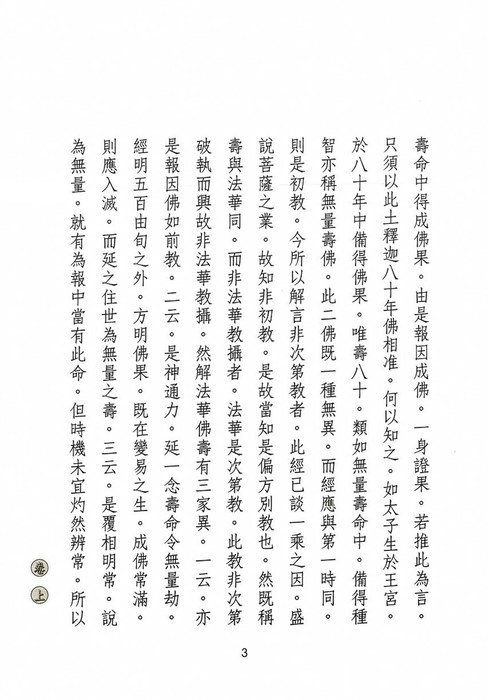 壽命中得成佛果。由是報因成佛。一身證果。若推此為言。
只須以此土釋迦八十年佛相准。何以知之。如太子生於王宮。
於八十年中備得佛果。唯壽八十。類如無量壽命中。備得種
智亦稱無量壽佛。此二佛既一種無異。而經應與第一時同。
則是初教。今所以解言非次第教者。此經已談一乘之因。盛
說菩薩之業。故知非初教。是故當知是偏方別教也。然既稱
壽與法華同。而非法華教攝者。法華是次第教。此教非次第
破執而興故非法華教攝。然解法華佛壽有三家異。一云。亦
是報因佛如前教。二云。是神通力。延一念壽命令無量劫。
經明五百由旬之外。方明佛果。既在變易之生。成佛常滿。
則應入滅。而延之住世為無量之壽。三云。是覆相明常。說
為無量。就有為報中當有此命。但時機未宜灼然辨常。所以
卷上
3